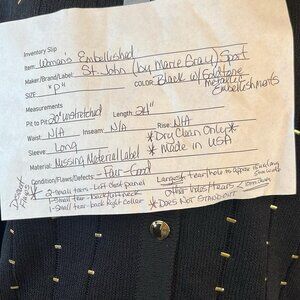 Inventory Slip
Item: Woman's Embellished
St. John (by Marie Gray) Sport
Maker/Brand/Label:
SIZE "P" COLOR: Black w/ Goldtone
Metallic
Embellishments
Measurements
Pit to Pit 20" unstretched Length 24"
Waist: N/A Inseam: N/A Rise: N/A
Sleeve: Long *Dry Clean Only*
Material: Missing Material Label * Made in USA *
Condition/Flaws/Defects: Fair-Good
2-Small tears - Left chest panel
1-Small tear - back left neck
1-Small tear - back right collar
Largest tear/hole to appear is
other holes/tears
*Does Not Stand Out